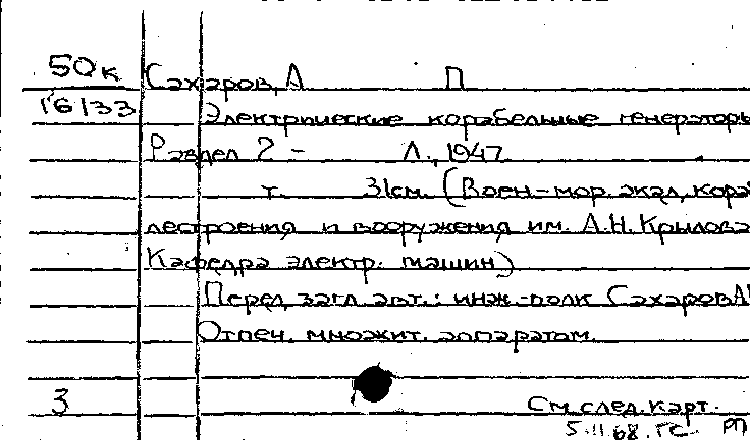 50к Сахаров, А П
16133 Электрические корабельные генераторы
Раздел 2 – Л., 1947
т. 31см. (Воен-мор. акад. кораб
лестроения и вооружения им. А.Н. Крылова
Кафедра электр. машин)
Перед загл. авт.: инж-полк Сахаров А
Отпеч. множит. аппаратом.
3 См. след. карт.
5.II 68. ГС РП